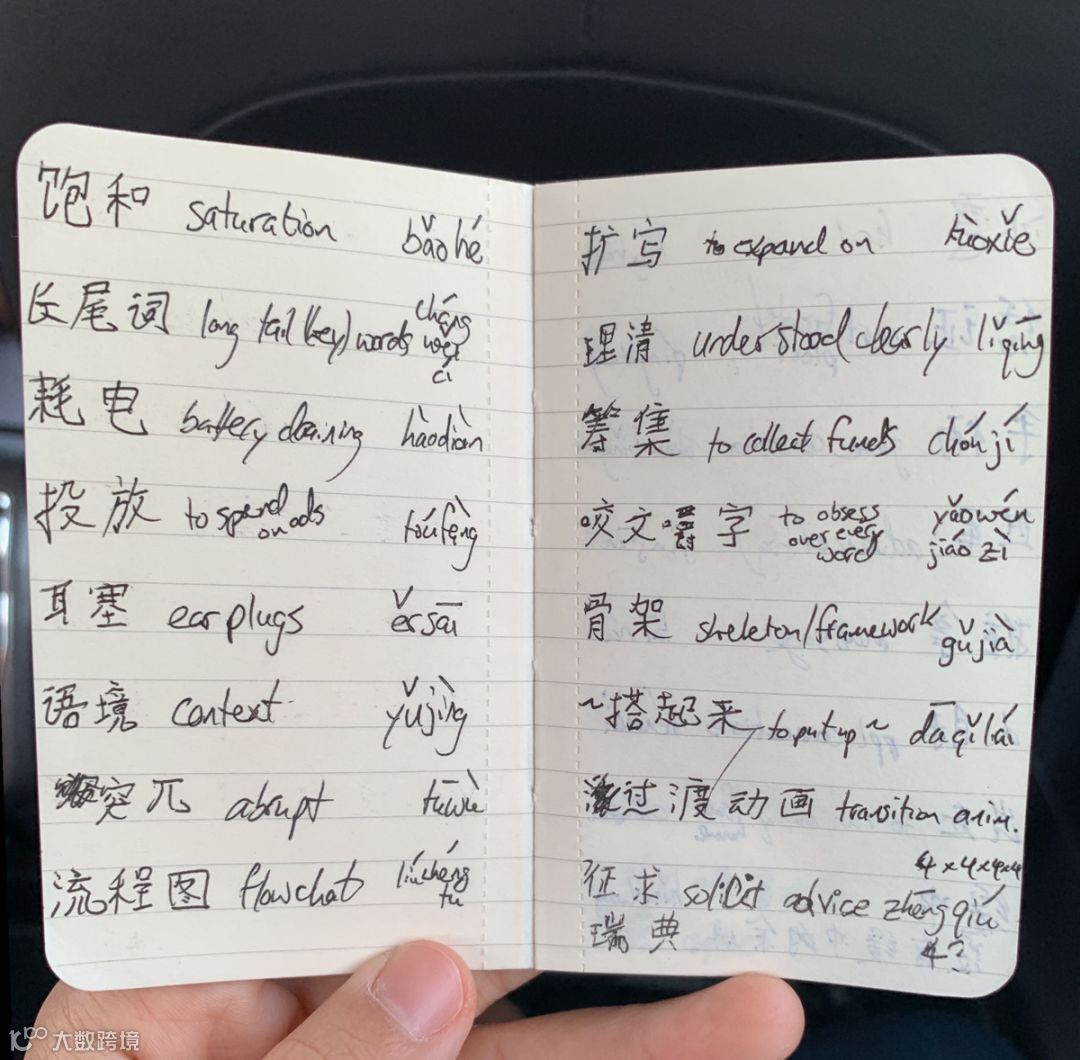 饱和 saturation bǎohé
长尾词 long tail (key)words cháng wěi cí
耗电 battery draining hàodiàn
投放 to spend on ads tóufàng
耳塞 ear plugs ěrsāi
语境 context yǔjìng
突兀 abrupt tūwù
流程图 flowchat liúchéng tú
扩写 to expand on kuòxiě
理清 understood clearly lǐqīng
筹集 to collect funds chóují
咬文嚼字 to obsess over every word yǎowén jiáo zì
骨架 skeleton/framework gǔjià
~搭起来 to put up ~ dāqǐlái
过渡动画 transition anim.
4x4x4x4
征求 solicit advice zhēngqiú
瑞典 4?
大数跨境